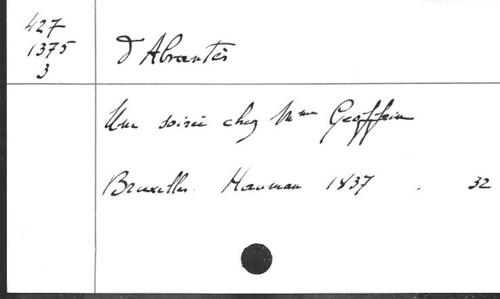 427
1375
3
d'Abrantès
Une soirée chez Mme Geoffrin
Bruxelles. Hauman 1837 . 32